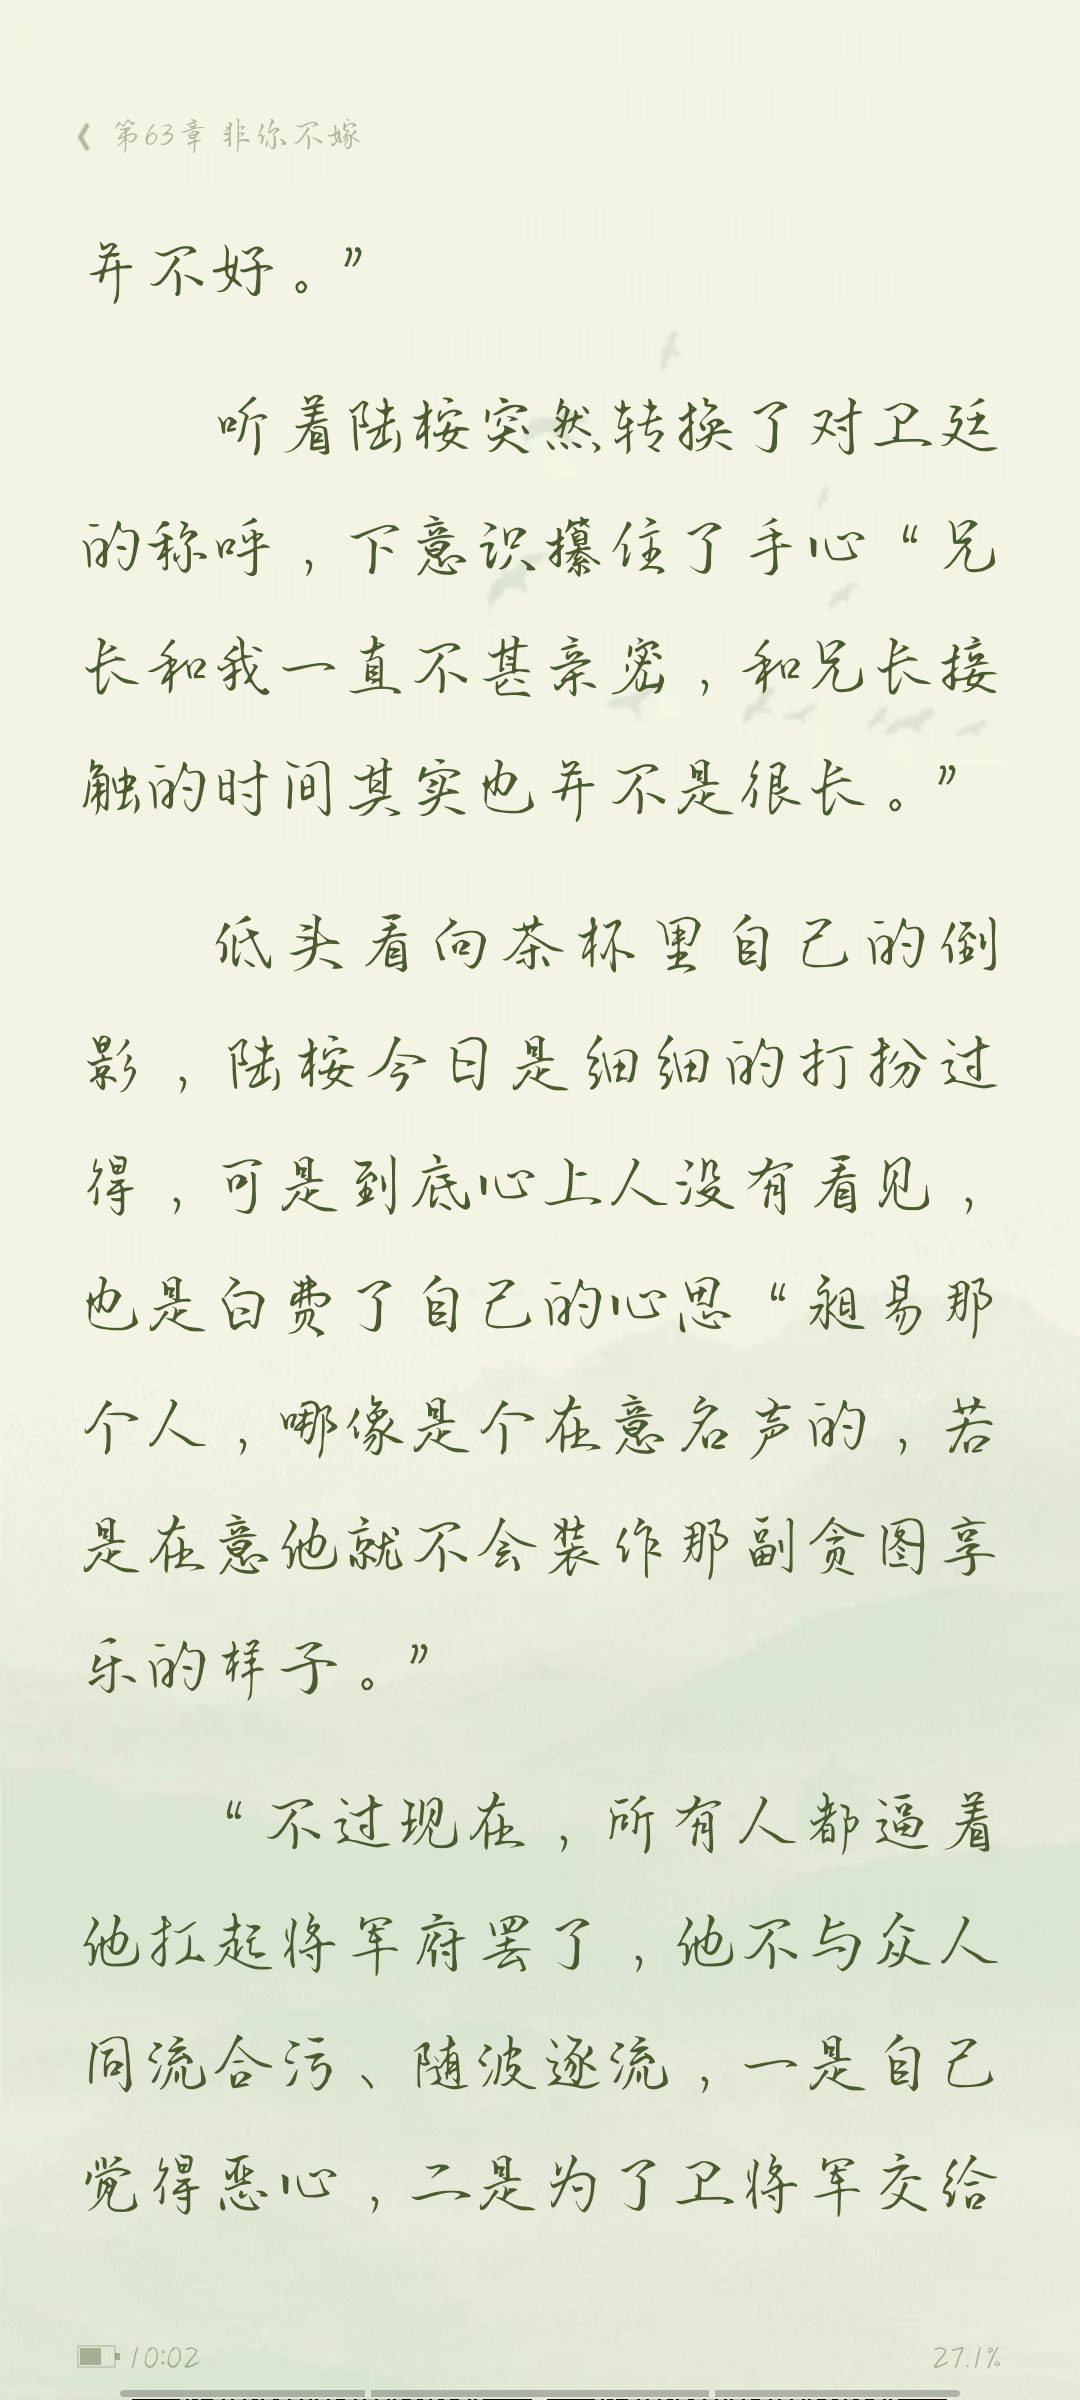 第63章 非你不嫁
并不好。”
听着陆桉突然转换了对卫廷
的称呼，下意识攥住了手心“兄
长和我一直不甚亲密，和兄长接
触的时间其实也并不是很长。”
低头看向茶杯里自己的倒
影，陆桉今日是细细的打扮过
得，可是到底心上人没有看见，
也是白费了自己的心思“昶易那
个人，哪像是个在意名声的，若
是在意他就不会装作那副贪图享
乐的样子。”
“不过现在，所有人都逼着
他扛起将军府罢了，他不与众人
同流合污、随波逐流，一是自己
觉得恶心，二是为了卫将军交给
10:02
27.1%